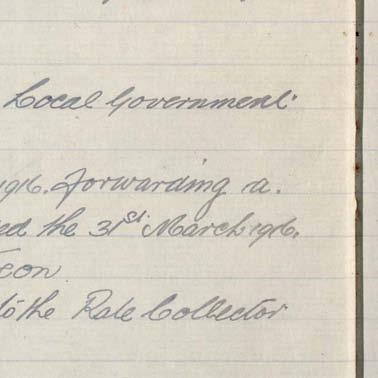 Local Government
1916. forwarding a.
ed the 31st March 1916.
to the Rate Collector